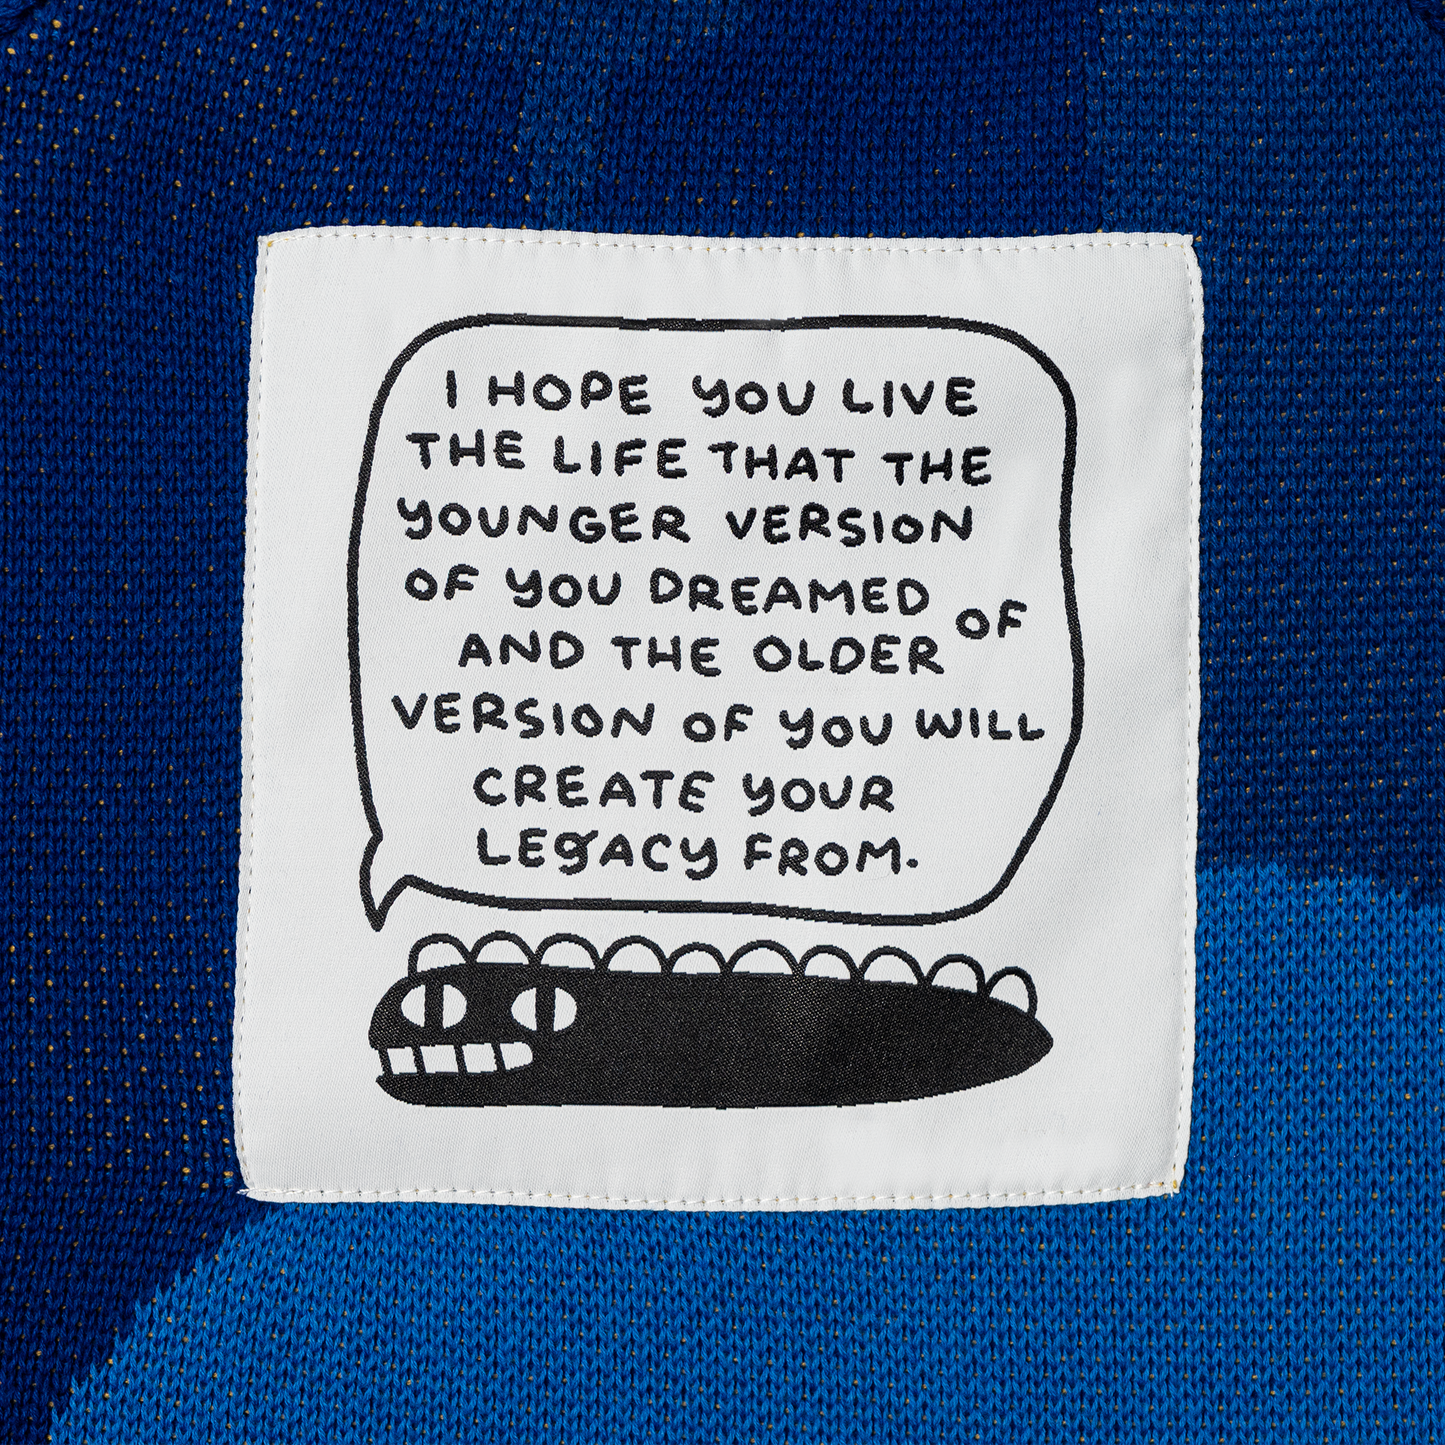 I HOPE YOU LIVE
THE LIFE THAT THE
YOUNGER VERSION
OF YOU DREAMED OF
AND THE OLDER
VERSION OF YOU WILL
CREATE YOUR
LEGACY FROM.